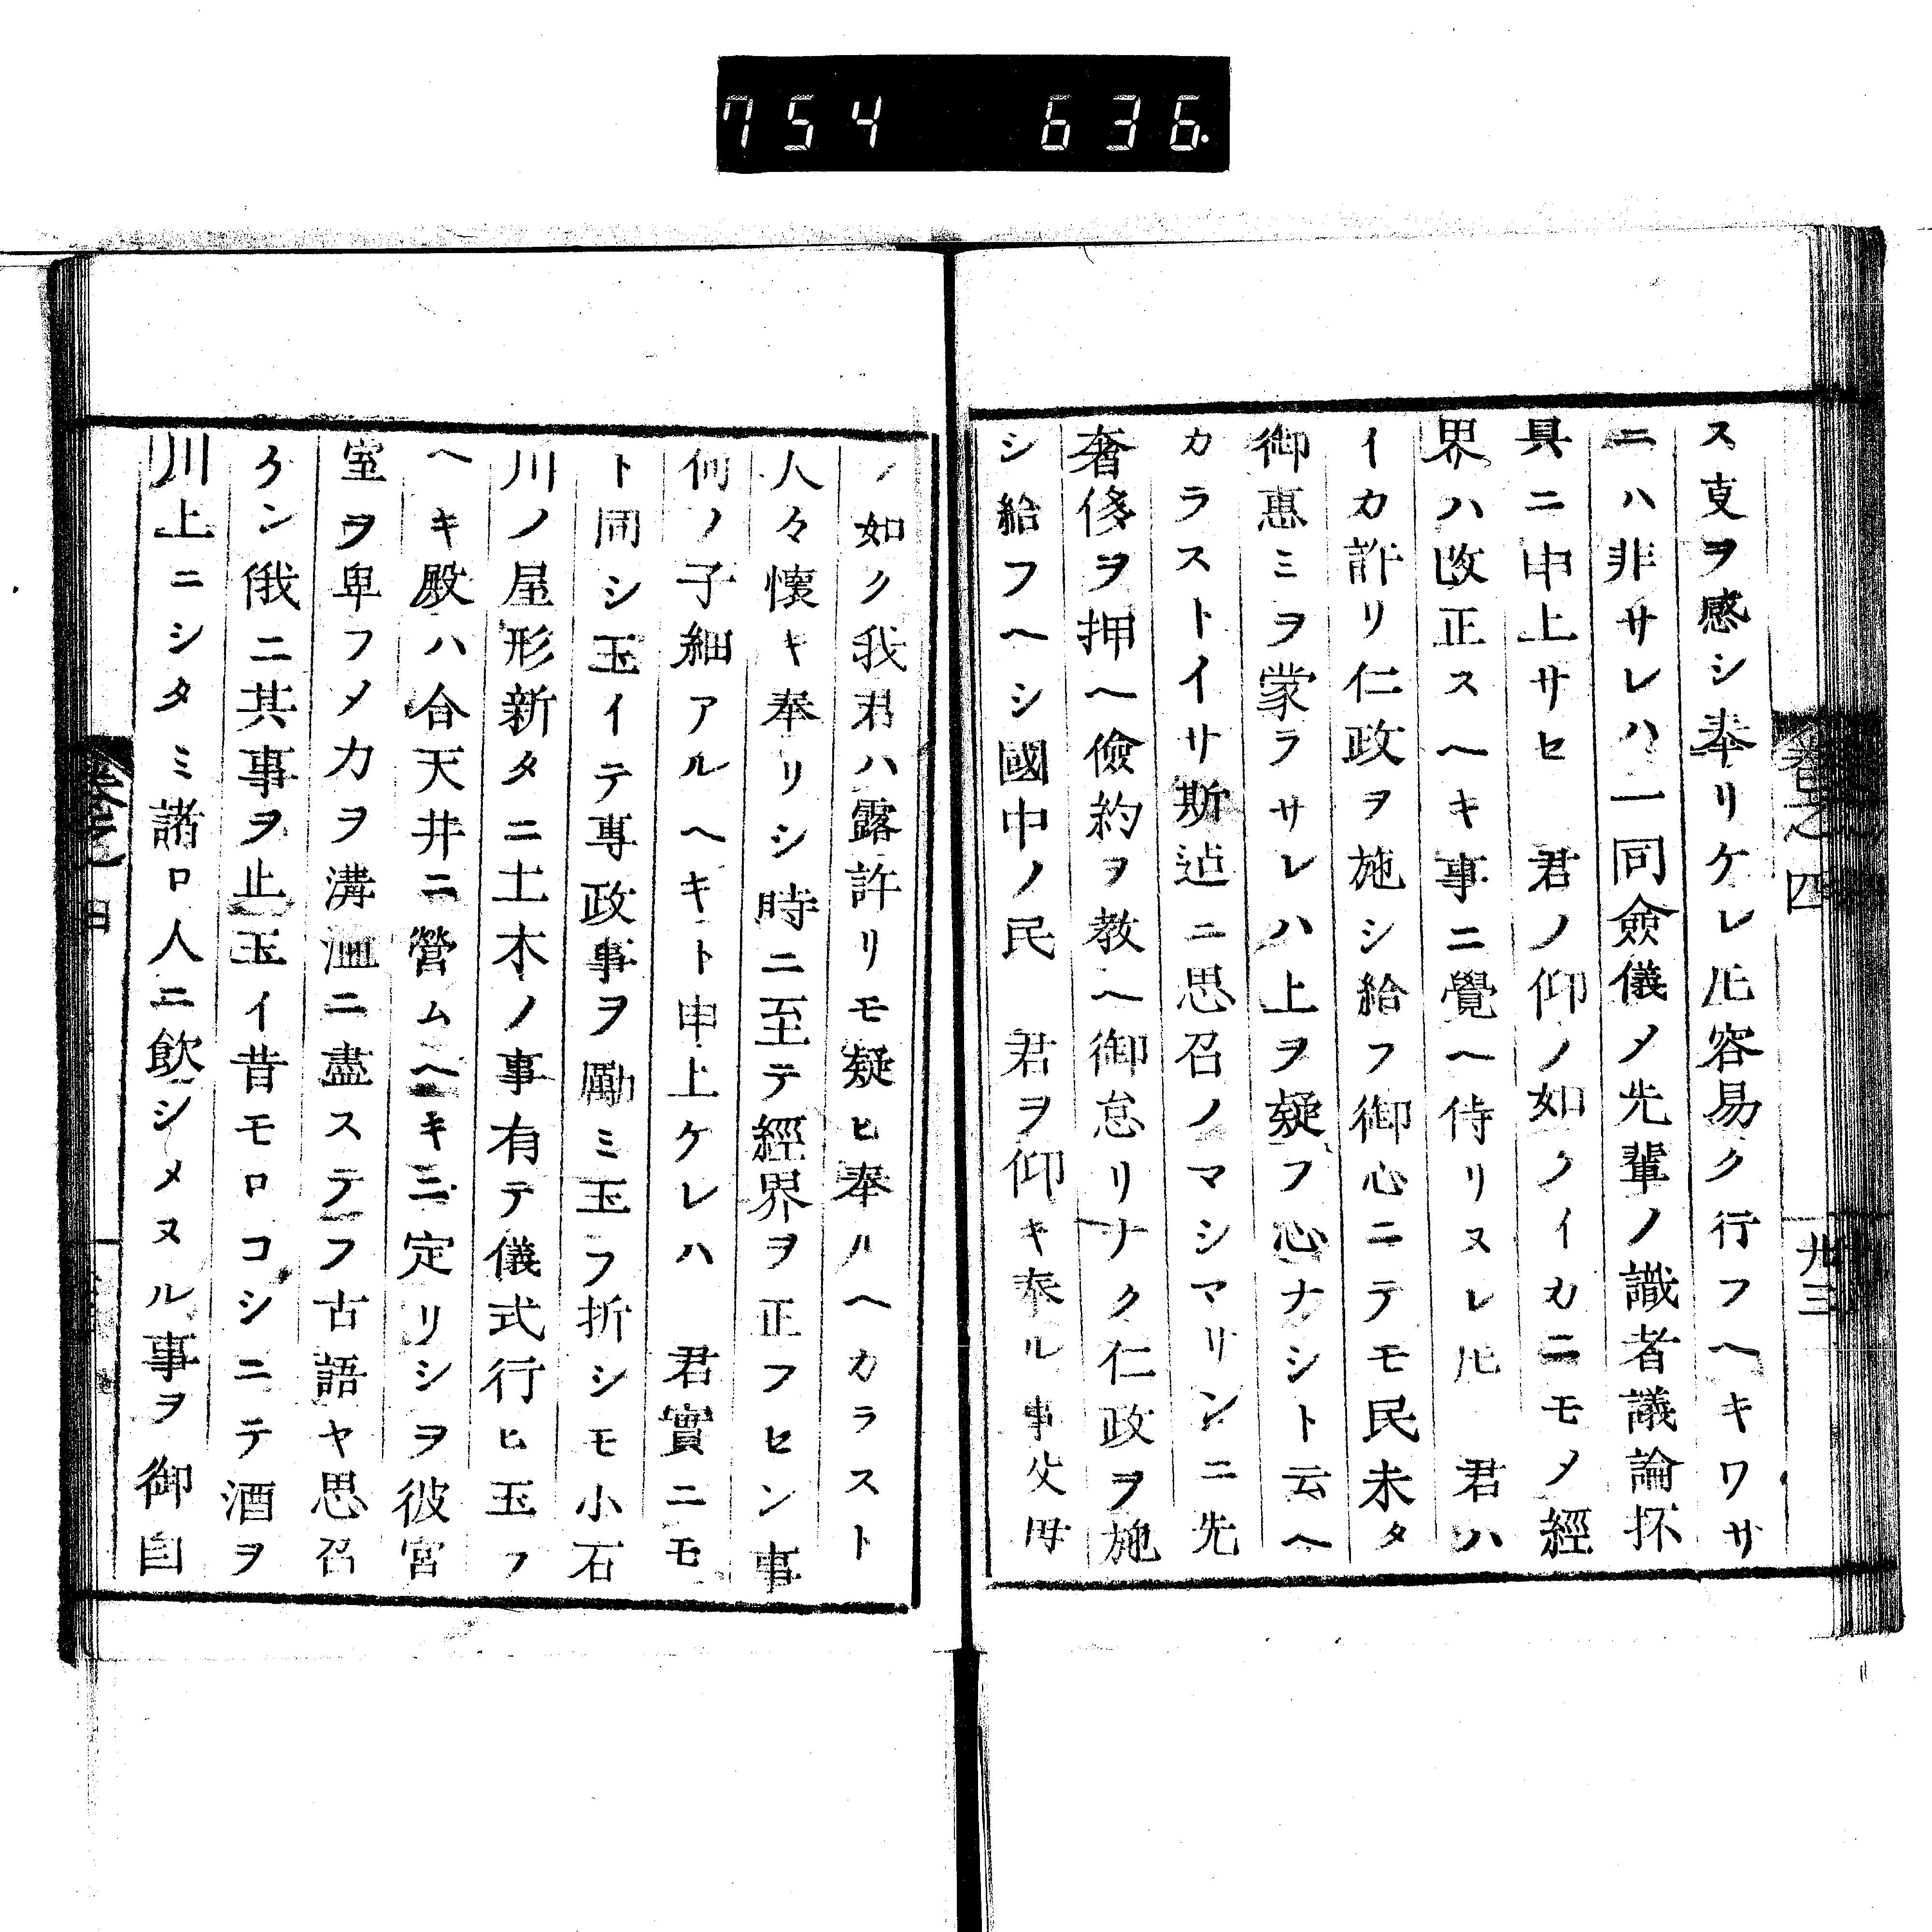 754 636.
卷之四
卅三
ス支ヲ感シ奉リケレ𪜈容易ク行フヘキワサ
ニハ非サレハ一同僉儀メ先輩ノ識者議論抔
具ニ申上サセ 君ノ仰ノ如クイカニモメ經
界ハ改正スヘキ事ニ覺ヘ侍リヌレ𪜈 君ハ
イカ許リ仁政ヲ施シ給フ御心ニテモ民未タ
御惠ミヲ蒙ラサレハ上ヲ疑フ心ナシト云ヘ
カラストイサ斯迠ニ思召ノマシマリンニ先
奢侈ヲ押ヘ儉約ヲ教ヘ御怠リナク仁政ヲ施
シ給フヘシ國中ノ民 君ヲ仰キ奉ル事父母
ノ如ク我君ハ露許リモ疑ヒ奉ルヘカラスト
人々懷キ奉リシ時ニ至テ經界ヲ正フセン事
何ノ子細アルヘキト申上ケレハ 君實ニモ
ト同シ玉イテ專政事ヲ勵ミ玉フ折シモ小石
川ノ屋形新タニ土木ノ事有テ儀式行ヒ玉フ
ヘキ殿ハ合天井ニ營ムヘキニ定リシヲ彼宮
室ヲ卑フメカヲ溝洫ニ盡ステフ古語ヤ思召
ケン俄ニ其事ヲ止玉イ昔モロコシニテ酒ヲ
川上ニシタミ諸ロ人ニ飲シメヌル事ヲ御自